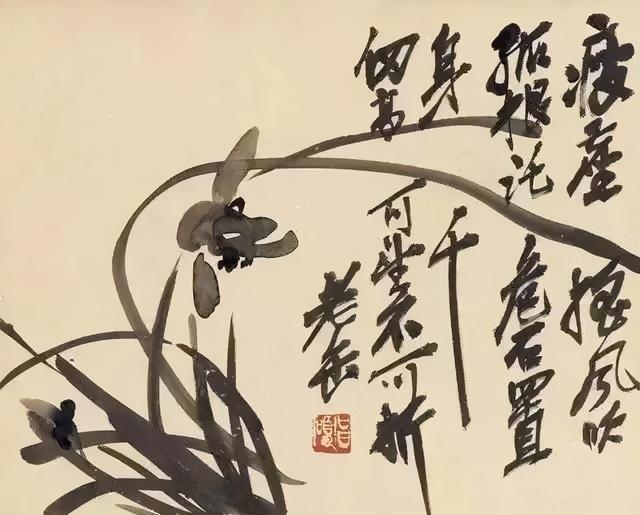 瘦莖搖風吹
孤根託危石置
身千
仞高可望不可折
老缶